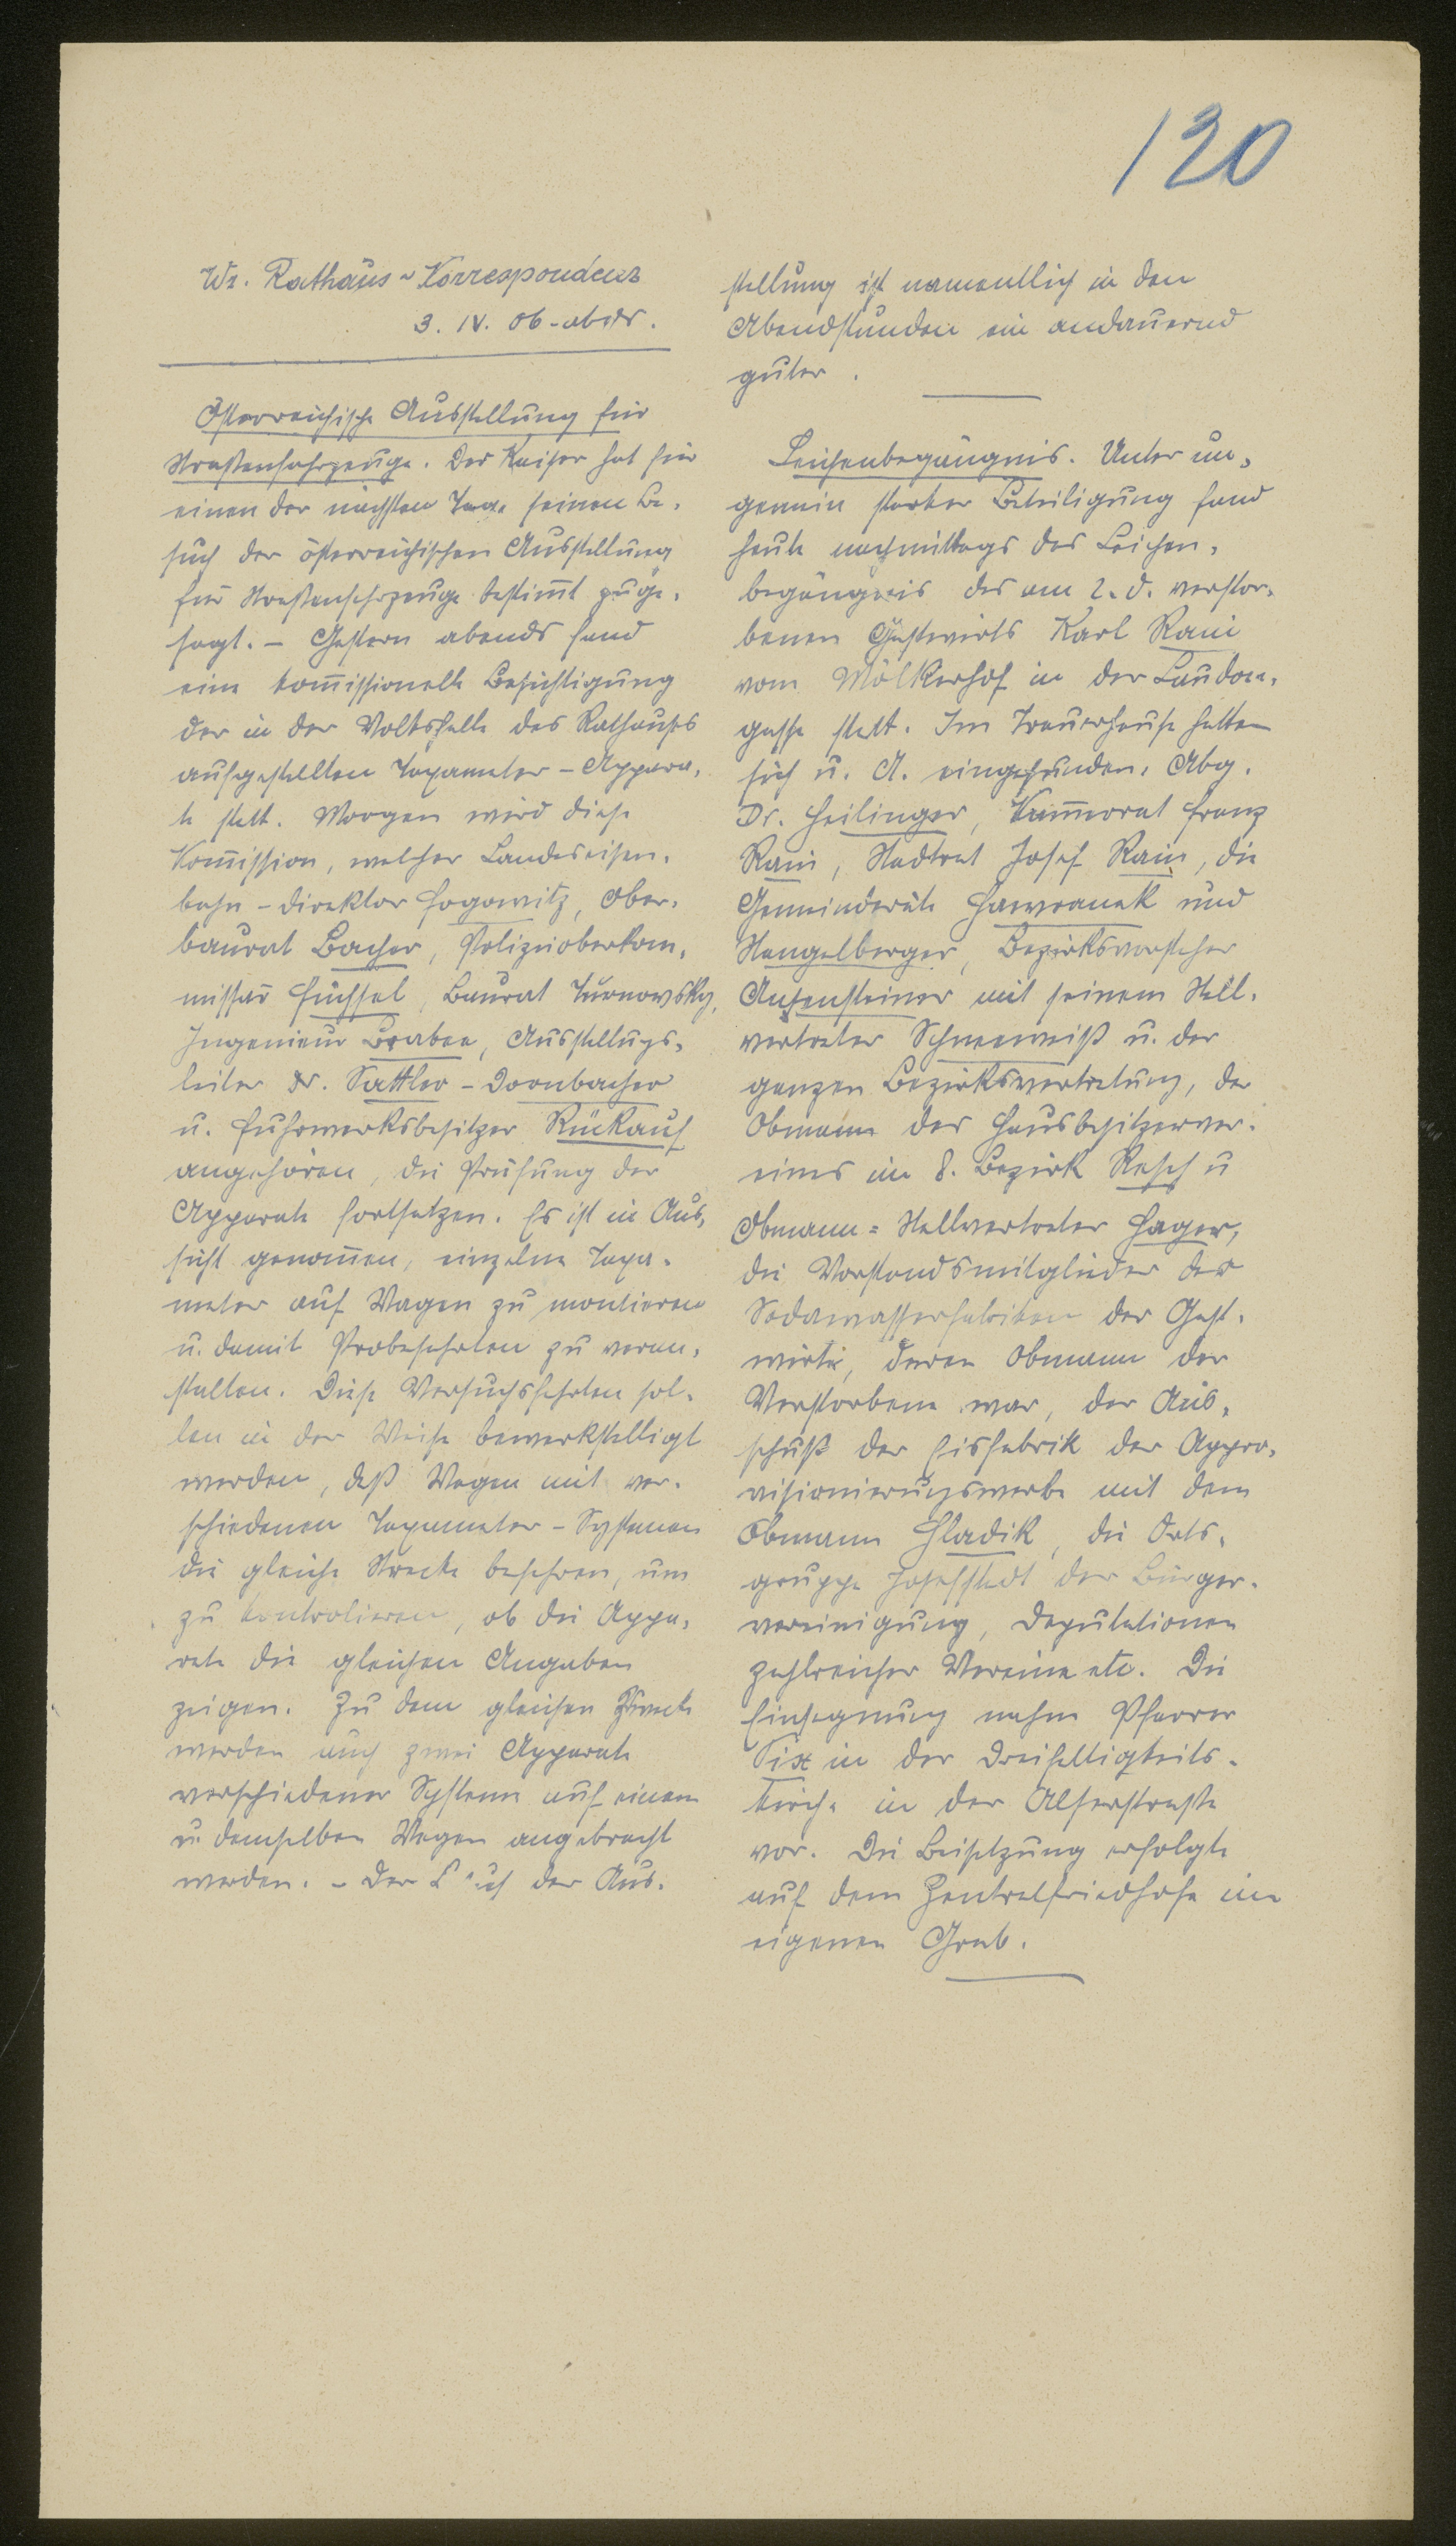 120
Wr. Rathaus-Korrespondenz
3. IV. 06. abds.
Österreichische Ausstellung für
Straßenfahrzeuge. Der Kaiser hat für
einen der nächsten Tage seinen Be-
such der österreichischen Ausstellung
für Straßenfahrzeuge bestim̅t zuge-
sagt. - Gestern abends fand
eine kom̅issionelle Besichtigung
der in der Volkshalle des Rathauses
aufgestellten Taxameter-Appara-
te statt. Morgen wird diese
Kom̅ission, welcher Landeseisen-
bahn-Direktor Fogowitz, Ober-
baurat Bacher, Polizeioberkom-
missär Füchsel, Baurat Turnowsky,
Ingenieur Brabee, Ausstellugs-
leiter Dr. Sattler-Dornbacher
u. Fuhrwerksbesitzer Rückauf
angehören, die Prüfung der
Apparate fortsetzen. Es ist in Aus-
sicht genom̅en, einzelne Taxa-
meter auf Wagen zu montieren
u. damit Probefahrten zu veran-
stalten. Diese Versuchsfahrten sol-
len in der Weise bewerkstelligt
werden, daß Wagen mit ver-
schiedenen Taxameter-Systemen
die gleiche Strecke befahren, um
zu kontrolieren, ob die Appa-
rate die gleichen Angaben
zeigen. Zu dem gleichen Zwecke
werden auch zwei Apparate
verschiedener Systeme auf einem
u. demselben Wagen angebracht
werden. - Der Besuch der Aus-
stellung ist namentlich in den
Abendstunden ein andauernd
guter.
Leichenbegängnis. Unter un-
gemein starker Beteiligung fand
heute nachmittags das Leichen-
begängnis des am 2. d. verstor-
benen Gastwirts Karl Rain
vom Mölkerhof in der Laudon-
gasse statt. Im Trauerhause hatten
sich u. A. eingefunden: Abg.
Dr. Heilinger, Kam̅errat Franz
Rain, Stadtrat Josef Rain, die
Gemeinderäte Hawranek und
Stangelberger, Bezirksvorsteher
Anzensteiner mit seinem Stell-
vertreter Schneeweiß u. der
ganzen Bezirksvertretung, der
Obmann des Hausbesitzerver-
eines im 8. Bezirk Resch u
Obmann-Stellvertreter Hager,
die Vorstandsmitglieder der
Sodawasserfabriken der Gast-
wirte, deren Obmann der
Verstorbene war, der Aus-
schuß der Eisfabrik der Appro-
visionierungswerbe mit dem
Obmann Hladik, die Orts-
gruppe Josefstadt der Bürger-
vereinigung, Deputationen
zahlreicher Vereine etc. Die
Einsegnung nahm Pfarrer
Six in der Dreifaltigkeits-
kirche in der Alserstraße
vor. Die Beisetzung erfolgte
auf dem Zentralfriedhofe im
eigenen Grab.